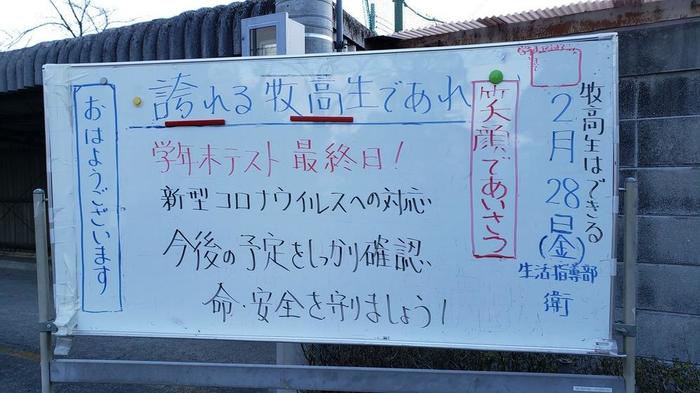 牧高生はできる
2月28日(金)
生活指導部
衛
笑顔であいさつ
誇れる牧高生であれ
学年末テスト 最終日!
新型コロナウイルスへの対応
今後の予定をしっかり確認
命・安全を守りましょう!
おはようございます